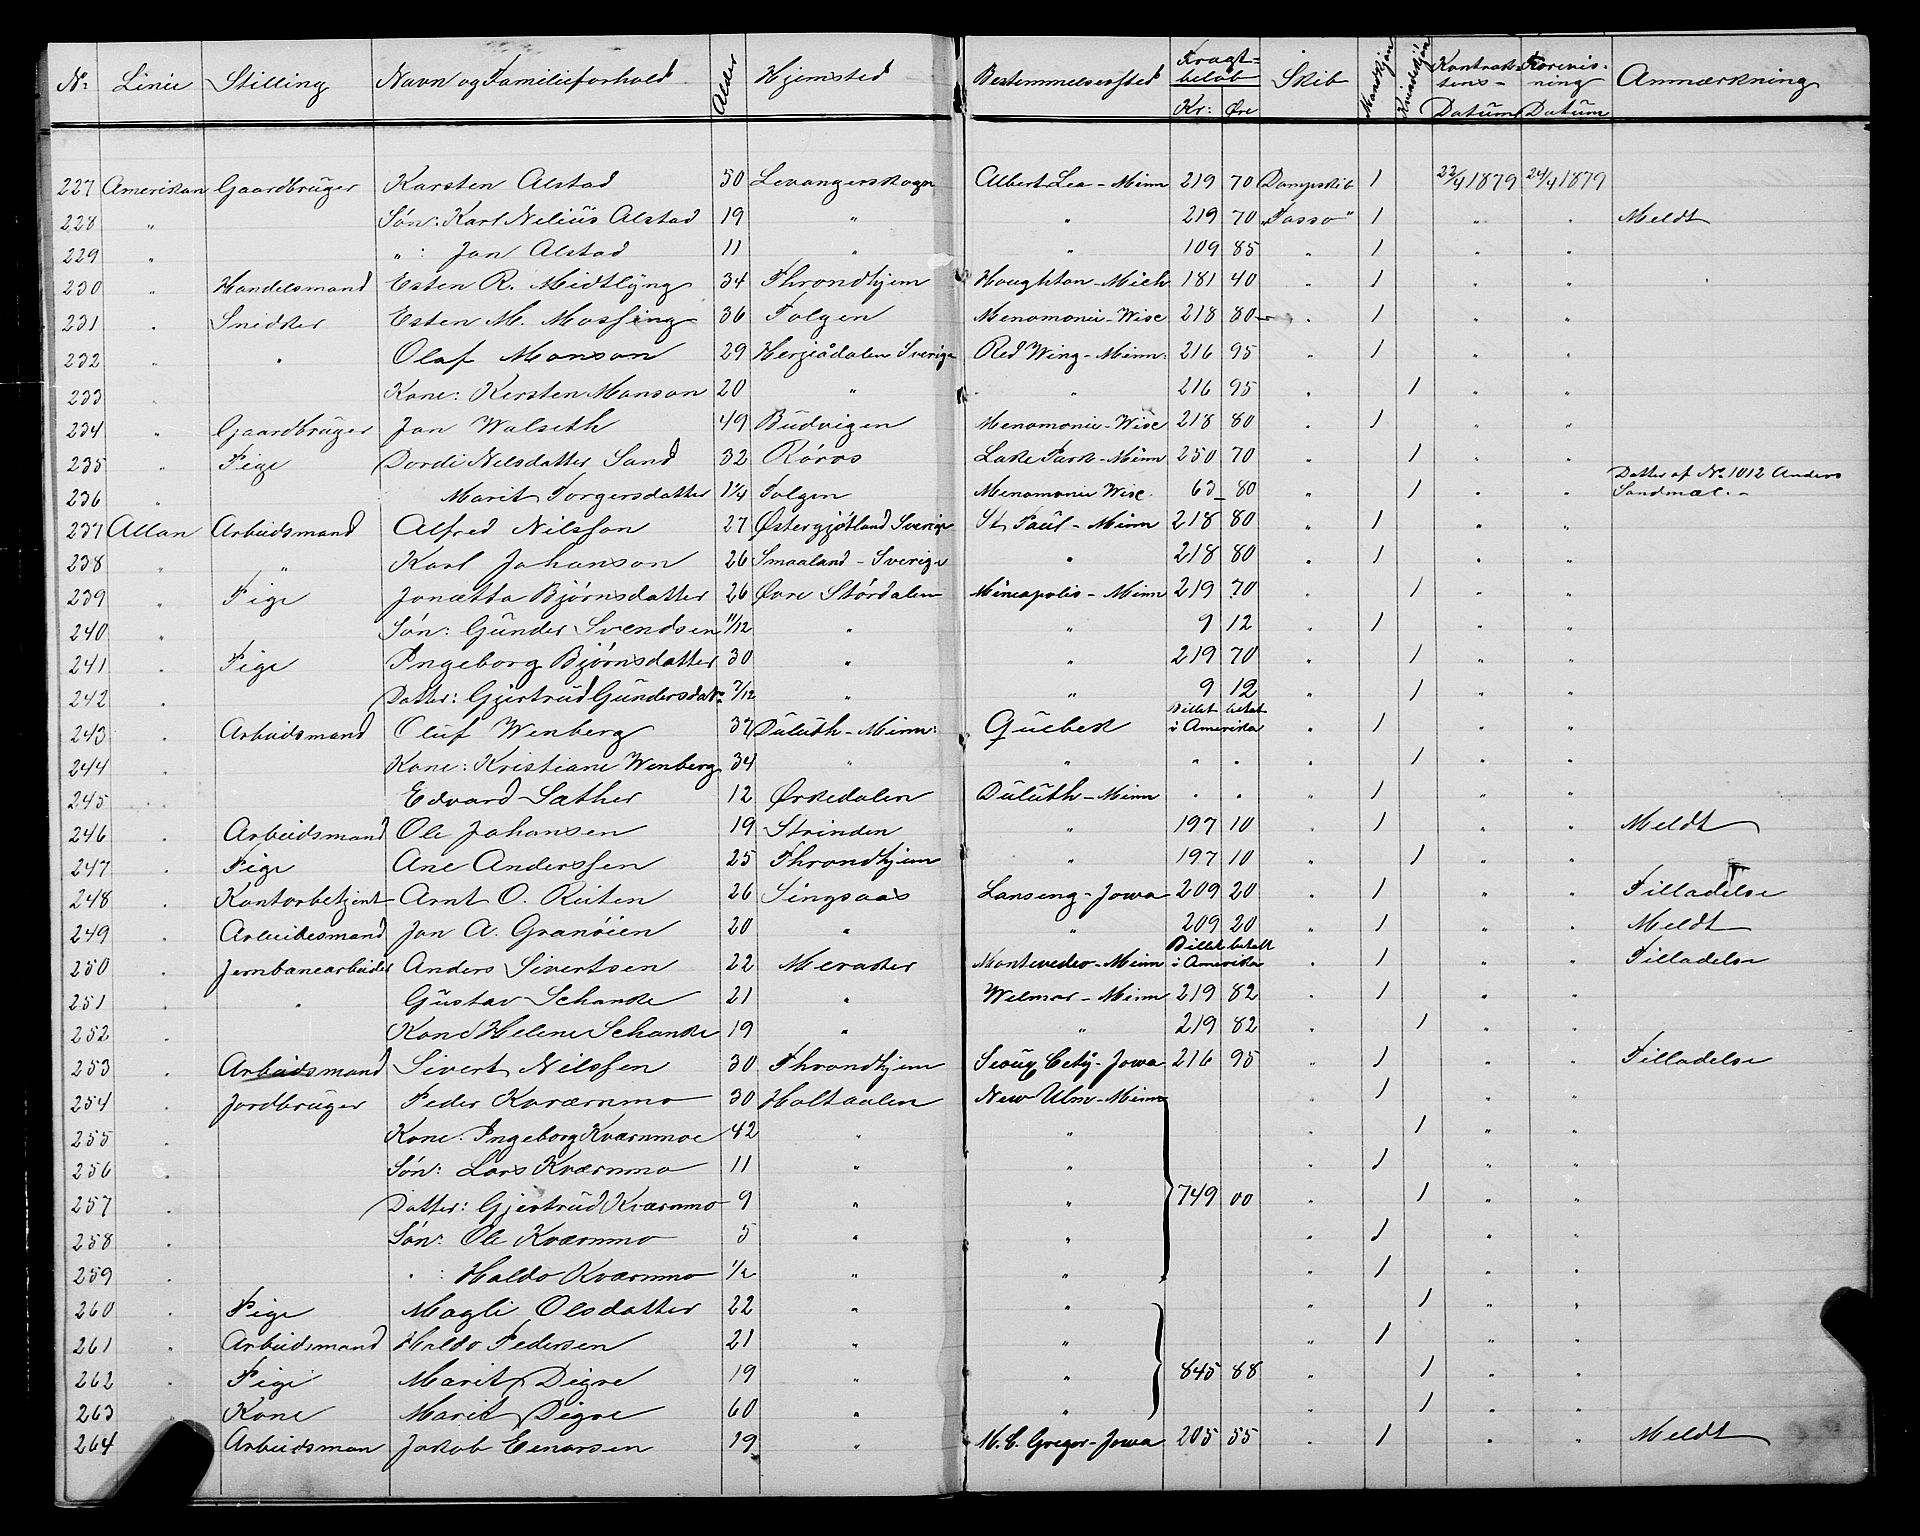 No Linie Stilling Navn og Familieforhold Alder Hjemsted Bestemmelsessted Fragtbeløb Kr: Øre Skib Mandkjøn Kvindekjøn Kontraktens Datum Forevisning Datum Anmærkning
227 Amerikan Gaardbruger Karsten Alstad 50 Levangerskogn Albert Lea - Minn 219 70 Dampskib 1 22/4 1879 24/4 1879
228 " Søn: Karl Nelius Alstad 19 " " 219 70 "Tasso" 1 " " Meldt
229 " " : Jon Alstad 11 " " 109 85 " 1 " "
230 " Handelsmand Esten R. Midtlyng 34 Throndhjem Houghton - Mich 181 40 " 1 " "
231 " Snedker Esten M. Mosfing 36 Tolgen Menomonie - Wisc 218 80 " 1 " "
232 " " Olaf Monson 29 Herjeådalen Sverige Red Wing - Minn: 216 95 " 1 " "
233 " Kone: Kersten Monson 20 " " 216 95 " 1 " "
234 " Gaardbruger Jon Walseth 49 Budvigen Menomonie - Wisc 218 80 " 1 " "
235 " Pige Dordi Nilsdatter Sand 32 Røros Lake Park - Minn 250 70 " 1 " "
236 " Marit Torgersdatter 1 1/4 Tolgen Menomonie Wisc. 63 80 " 1 " " Datter af No 1012 Anders Sandmæl. -
237 Allan Arbeidsmand Alfred Nilsson 27 Østergjøtland Sverige St. Paul - Minn 218 80 " 1 " "
238 " " Karl Johanson 26 Smaaland - Sverige " 218 80 " 1 " "
239 " Pige Jonætta Bjørnsdatter 26 Øvre Størdalen Mineapolis - Minn 219 70 " 1 " "
240 " Søn: Gunder Svendsen 11/12 " " 9 12 " 1 " "
241 " Pige Ingeborg Bjørnsdatter 30 " " 219 70 " 1 " "
242 " Datter: Gjertrud Gundersdatr 7/12 " " 9 12 " 1 " "
243 " Arbeidsmand Oluf Wenberg 32 Duluth - Minn: Quebek Billet betat i Amerika " 1 " "
244 " Kone: Kristiane Wenberg 34 " " " " " 1 " "
245 " Edvard Sæther 12 Ørkedalen Duluth - Minn " " " 1 " "
246 " Arbeidsmand Ole Johansen 19 Strinden " 197 10 " 1 " " Meldt
247 " Pige Ane Anderssen 25 Throndhjem " 197 10 " 1 " "
248 " Kontorbetjent Arnt O. Reiten 26 Singsaas Lansing - Jowa 209 20 " 1 " " Tilladelse
249 " Arbeidesmand Jon A. Granøien 20 " " 209 20 " 1 " " Meldt
250 " Jernbanearbeider Anders Sivertsen 22 Meraker Montevedeo - Minn Billet betalt i Amerika " 1 " " Tilladelse
251 " " Gustav Schanke 21 " Welmar - Minn 219 82 " 1 " "
252 " Kone Helene Schanke 19 " " 219 82 " 1 " "
253 " Arbeidsmand Sivert Nilssen 30 Throndhjem Seoux Cety - Jowa 216 95 " 1 " " Tilladelse
254 " Jordbruger Peder Kværnmo 30 Holtaalen New Ulm - Minn 1 " "
255 " Kone: Ingeborg Kværnmoe 42 " " " 1 " "
256 " Søn: Lars Kværnmo 11 " " " 1 " "
257 " Datter: Gjertrud Kværnmo 9 " " 749 00 " 1 " "
258 " Søn: Ole Kværnmo 5 " " " 1 " "
259 " " : Haldo Kværnmo 1/2 " " " 1 " "
260 " Pige Magli Olsdatter 22 " " " 1 " "
261 " Arbeidsmand Haldo Pedersen 21 " " " 1 " "
262 " Pige Marit Digre 19 " " 845 88 " 1 " "
263 " Kone Marit Digre 60 " " " 1 " "
264 " Arbeidsman Jakob Eenarsen 19 " M. C. Gregor - Jowa 205 55 " 1 " " Meldt